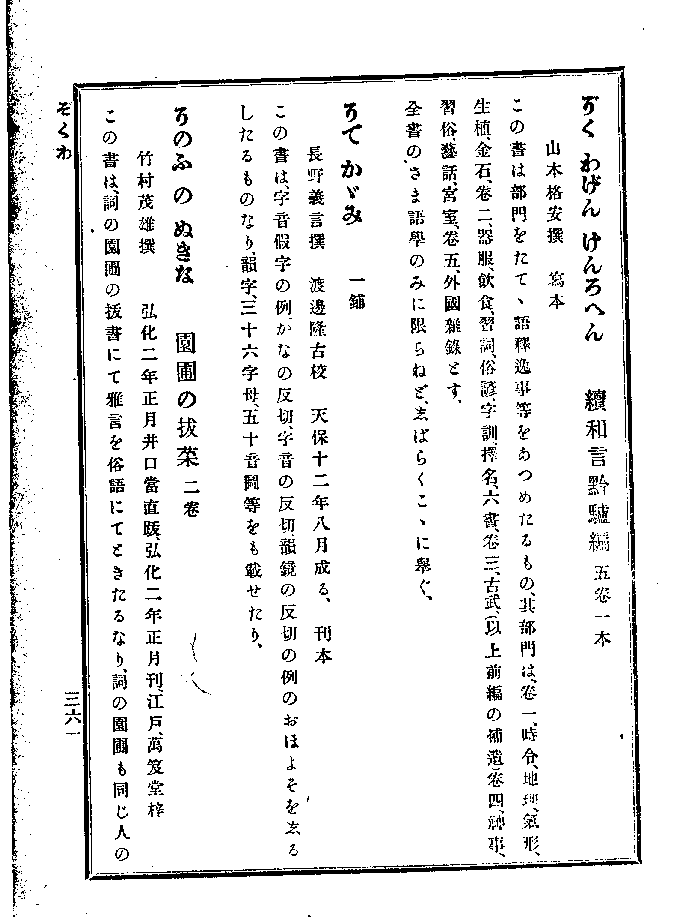 ぞく わげん けんろへん　續和言黔驢編 五卷一本
山本格安撰　寫本
この書は部門をたてゝ語釋逸事等をあつめたるもの、其部門は、卷一、時令、地理、氣形、
生植、金石、卷二、器服、飮食、習詞、俗諺、字訓、擇名、六書、卷三、古武、(以上前編の補遺)卷四、神事、
習俗、藝話、宮室、卷五、外國雜錄とす、
全書のさま語學のみに限らねど、ゑばらくこゝに擧ぐ、
そで かゞみ　一鋪
長野義言撰　渡邊隆古校　天保十二年八月成る、刊本
この書は、字音假字の例かなの反切、字音の反切韻鏡の反切の例のおほよそをゑる
したるものなり、韻字、三十六字母、五十音圖等をも載せたり、
そのふ の ぬきな　園圃の拔菜 二卷
竹村茂雄撰　弘化二年正月井口當直跋、弘化二年正月刊、江戸、萬笈堂梓
この書は、詞の園圃の拔書にて雅言を俗語にてときたるなり、詞の園圃も同じ人の
ぞくわ
三六一